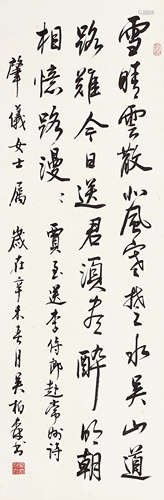 雪晴雲散北風寒楚水吳山道
路難今日送君須盡醉明朝
相憶路漫〻賈至送李侍郎赴常州詩
肇儀女士屬 歲在辛未春月吳柏森書